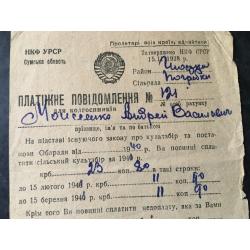 Пролетарі всіх країн, єднайтеся!
НКФ УРСР
Сумська область
Затверджено НКФ СРСР
15. 1938 р.
Район
Сільрада
ПЛАТІЖНЕ ПОВІДОМЛЕННЯ № 121
для колгоспників особ. рахунку
Моисеенко Андрей Васильевич
прізвище, ім'я та по батькові
На підставі існуючого закону про культзбір та поста-
нови Облради від 1940 р. Ви повинні
сплатити сільський культзбір за 1940 р.
крб. 23 коп. 80 в такі строки:
до 15 лютого 194 крб. 11 коп. 90
до 15 березня 194 крб. 11 коп. 90
Крім того Ви повинні сплатити недоплату, яка за Вами